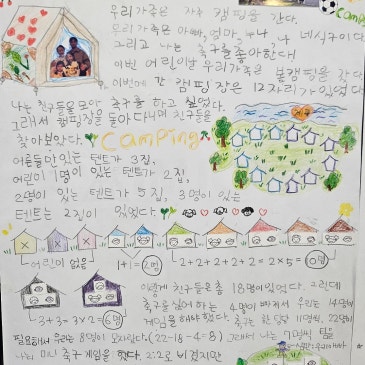 우리가족은 자주 캠핑을 간다.
우리가족은 아빠, 엄마, 누나, 나 네식구이다.
그리고 나는 축구를 좋아한다!
이번 어린이날 우리가족은 봄캠핑을 간다.
이번에 간 캠핑장은 12자리가 있었다
나는 친구들을 모아 축구를 하고 싶었다.
그래서 캠핑장을 돌아다니며 친구들을
찾아보았다.
camping
어른들만 있는 텐트가 3집,
어린이 1명이 있는 텐트가 2집,
2명이 있는 텐트가 5집, 3명이 있는
텐트는 2집이 있었다.
어린이 없음
1+1=2명
2+2+2+2+2=2×5=10명
3+3=3×2=6명
이렇게 친구들은 총 18명이 있었다. 그런데
축구를 싫어 하는 4명이 빠져서 우리는 14명이
게임을 해야 했다. 축구는 한 팀당 11명씩, 22명이
필요해서 우리는 8명이 모자랐다.(22-18-4=8) 그래서 나는 7명씩 팀을
나눠 미니 축구 게임을 했다. 2:2로 비겼지만